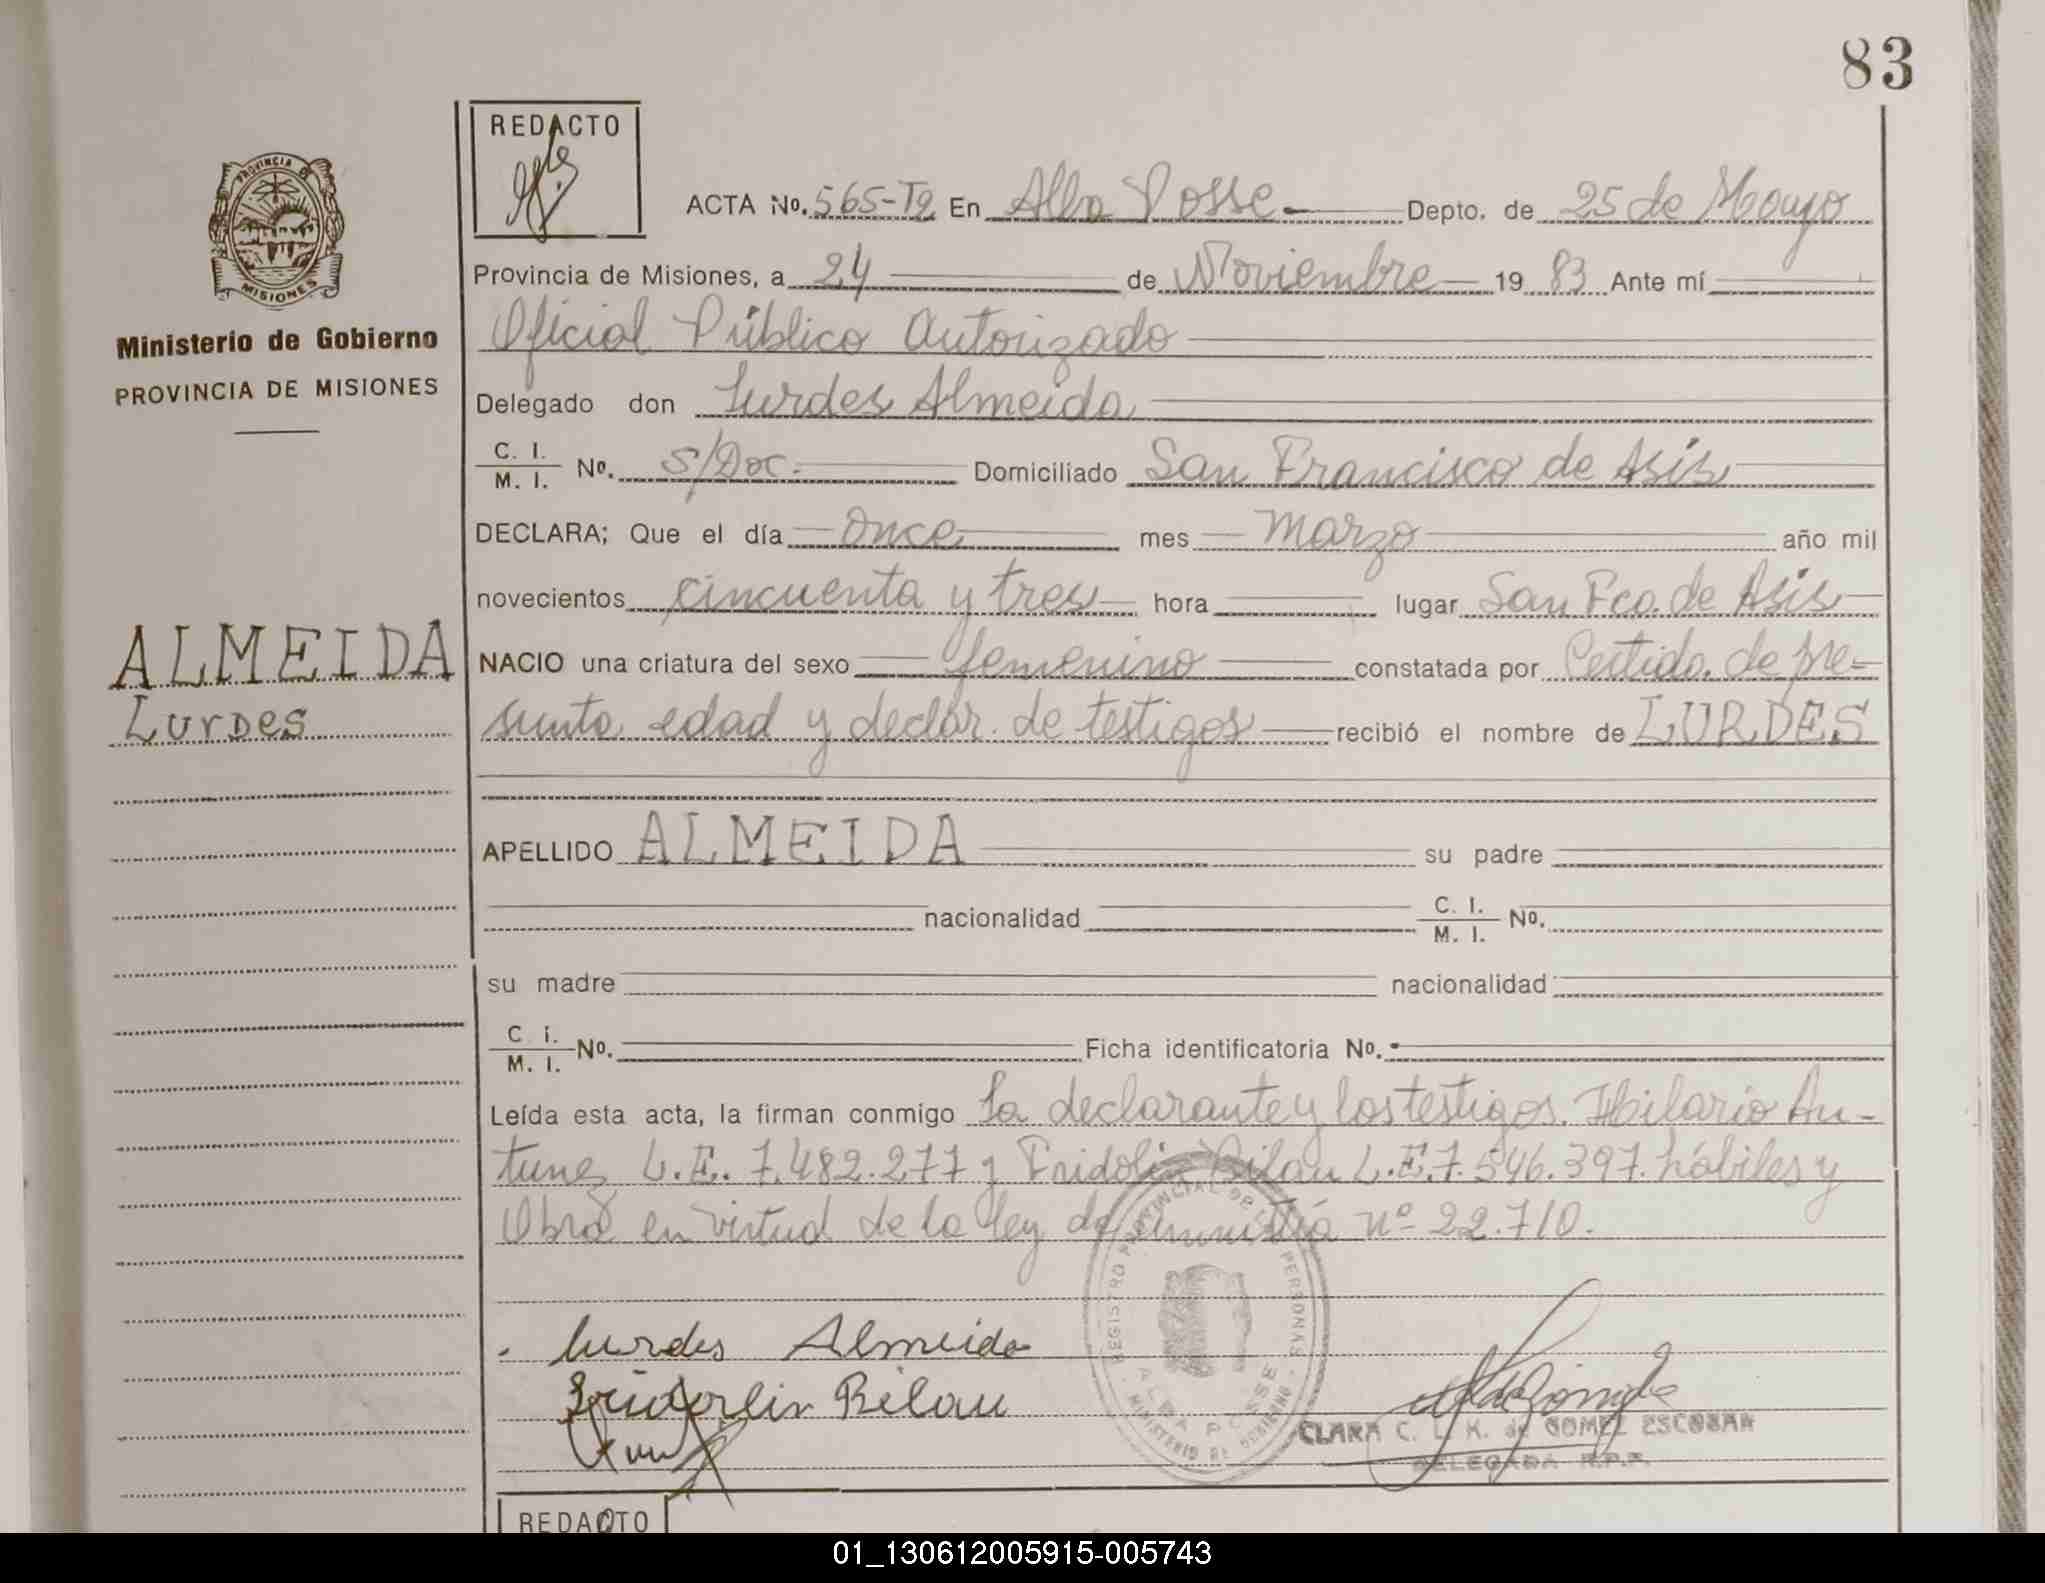 83
REDACTO
ACTA No. 565-T2 En Alba Posse Depto. de 25 de Mayo
Provincia de Misiones, a 24 de Noviembre 19 83 Ante mí
Oficial Público Autorizado
Delegado don Lurdes Almeida
C. I. M. I. No. s/Doc. Domiciliado San Francisco de Asís
DECLARA; Que el día once mes Marzo año mil
novecientos cincuenta y tres hora lugar San Fco. de Asís
NACIO una criatura del sexo femenino constatada por Certido. de pre-
sunta edad y declar. de testigos recibió el nombre de LURDES
APELLIDO ALMEIDA su padre
nacionalidad C. I. M. I. No.
su madre nacionalidad
C. I. M. I. No. Ficha identificatoria No.
Leída esta acta, la firman conmigo La declarante y los testigos. Hilario An-
tunez L.E. 7.482.277 y Fridolin Bilau L.E. 7.546.397. hábiles y
Obra en virtud de la ley de amnistía nº 22.710.
Lurdes Almeida
Fridorlin Bilau
REGISTRO PROVINCIAL DE PERSONAS
ALBA POSSE
MINISTERIO DE GOBIERNO
CLARA C. L. K. de GOMEZ ESCOBAR
DELEGADA R.P.P.
REDACTO
PROVINCIA DE
MISIONES
Ministerio de Gobierno
PROVINCIA DE MISIONES
ALMEIDA
Lurdes
01_130612005915-005743